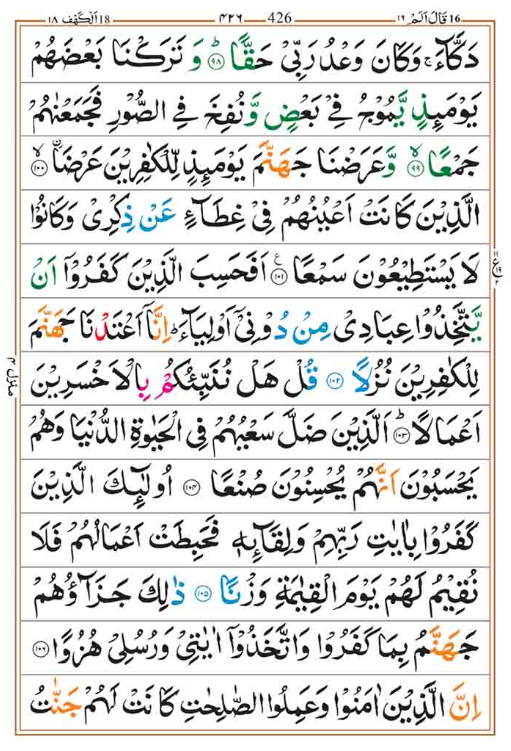 ١٨ اَلۡكَهۡف 18 ٤٢٦ 426 ١٦ قَالَ اَلَمۡ 16
دَكَّآءَ ۚ وَكَانَ وَعۡدُ رَبِّىۡ حَقًّا ؕ‏﴿۹۸﴾ وَ تَرَكۡنَا بَعۡضَهُمۡ
يَوۡمَٮِٕذٍ يَّمُوۡجُ فِىۡ بَعۡضٍ وَّنُفِخَ فِى الصُّوۡرِ فَجَمَعۡنٰهُمۡ
جَمۡعًا ۙ‏﴿۹۹﴾ وَّعَرَضۡنَا جَهَـنَّمَ يَوۡمَٮِٕذٍ لِّـلۡكٰفِرِيۡنَ عَرۡضَا ۙ‏﴿۱۰۰﴾
الَّذِيۡنَ كَانَتۡ اَعۡيُنُهُمۡ فِىۡ غِطَآءٍ عَنۡ ذِكۡرِىۡ وَكَانُوۡا
لَا يَسۡتَطِيۡعُوۡنَ سَمۡعًا ‏﴿۱۰۱﴾ اَفَحَسِبَ الَّذِيۡنَ كَفَرُوۡۤا اَنۡ
يَّتَّخِذُوۡا عِبَادِىۡ مِنۡ دُوۡنِىۡۤ اَوۡلِيَآءَ ؕ اِنَّاۤ اَعۡتَدۡنَا جَهَـنَّمَ
لِلۡكٰفِرِيۡنَ نُزُلًا ‏﴿۱۰۲﴾ قُلۡ هَلۡ نُـنَبِّئُكُمۡ بِالۡاَخۡسَرِيۡنَ
اَعۡمَالًا ؕ‏﴿۱۰۳﴾ اَلَّذِيۡنَ ضَلَّ سَعۡيُهُمۡ فِى الۡحَيٰوةِ الدُّنۡيَا وَهُمۡ
يَحۡسَبُوۡنَ اَنَّهُمۡ يُحۡسِنُوۡنَ صُنۡعًا ‏﴿۱۰۴﴾ اُولٰۤٮِٕكَ الَّذِيۡنَ
كَفَرُوۡا بِاٰيٰتِ رَبِّهِمۡ وَلِقَآٮِٕهٖ فَحَبِطَتۡ اَعۡمَالُهُمۡ فَلَا
نُقِيۡمُ لَهُمۡ يَوۡمَ الۡقِيٰمَةِ وَزۡنًا ‏﴿۱۰۵﴾ ذٰلِكَ جَزَآؤُهُمۡ
جَهَـنَّمُ بِمَا كَفَرُوۡا وَاتَّخَذُوۡۤا اٰيٰتِىۡ وَرُسُلِىۡ هُزُوًا ‏﴿۱۰۶﴾
اِنَّ الَّذِيۡنَ اٰمَنُوۡا وَعَمِلُوا الصّٰلِحٰتِ كَانَتۡ لَهُمۡ جَنّٰتُ
منزل ٤